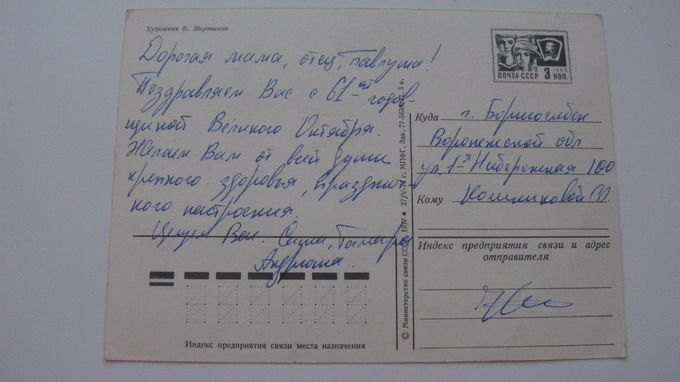 Художник В. Мартинов
Дорогая мама, отец, Павлуша!
Поздравляем Вас с 61-ой годов-
щиной Великого Октября.
Желаем Вам от всей души
крепкого здоровья, праздни-
чного настроения.
Целуем Вас. Саша, Тамара
Андрюша.
Индекс предприятия связи места назначения
© Министерство связи СССР, 1977 • 27/V-77 г. МПФГ, Зак.
ПОЧТА СССР 3 КОП.
1966
Куда г. Борисоглебск
Воронежской обл
ул. 1-я Набережная 100
Кому
Индекс предприятия связи и адрес
отправителя